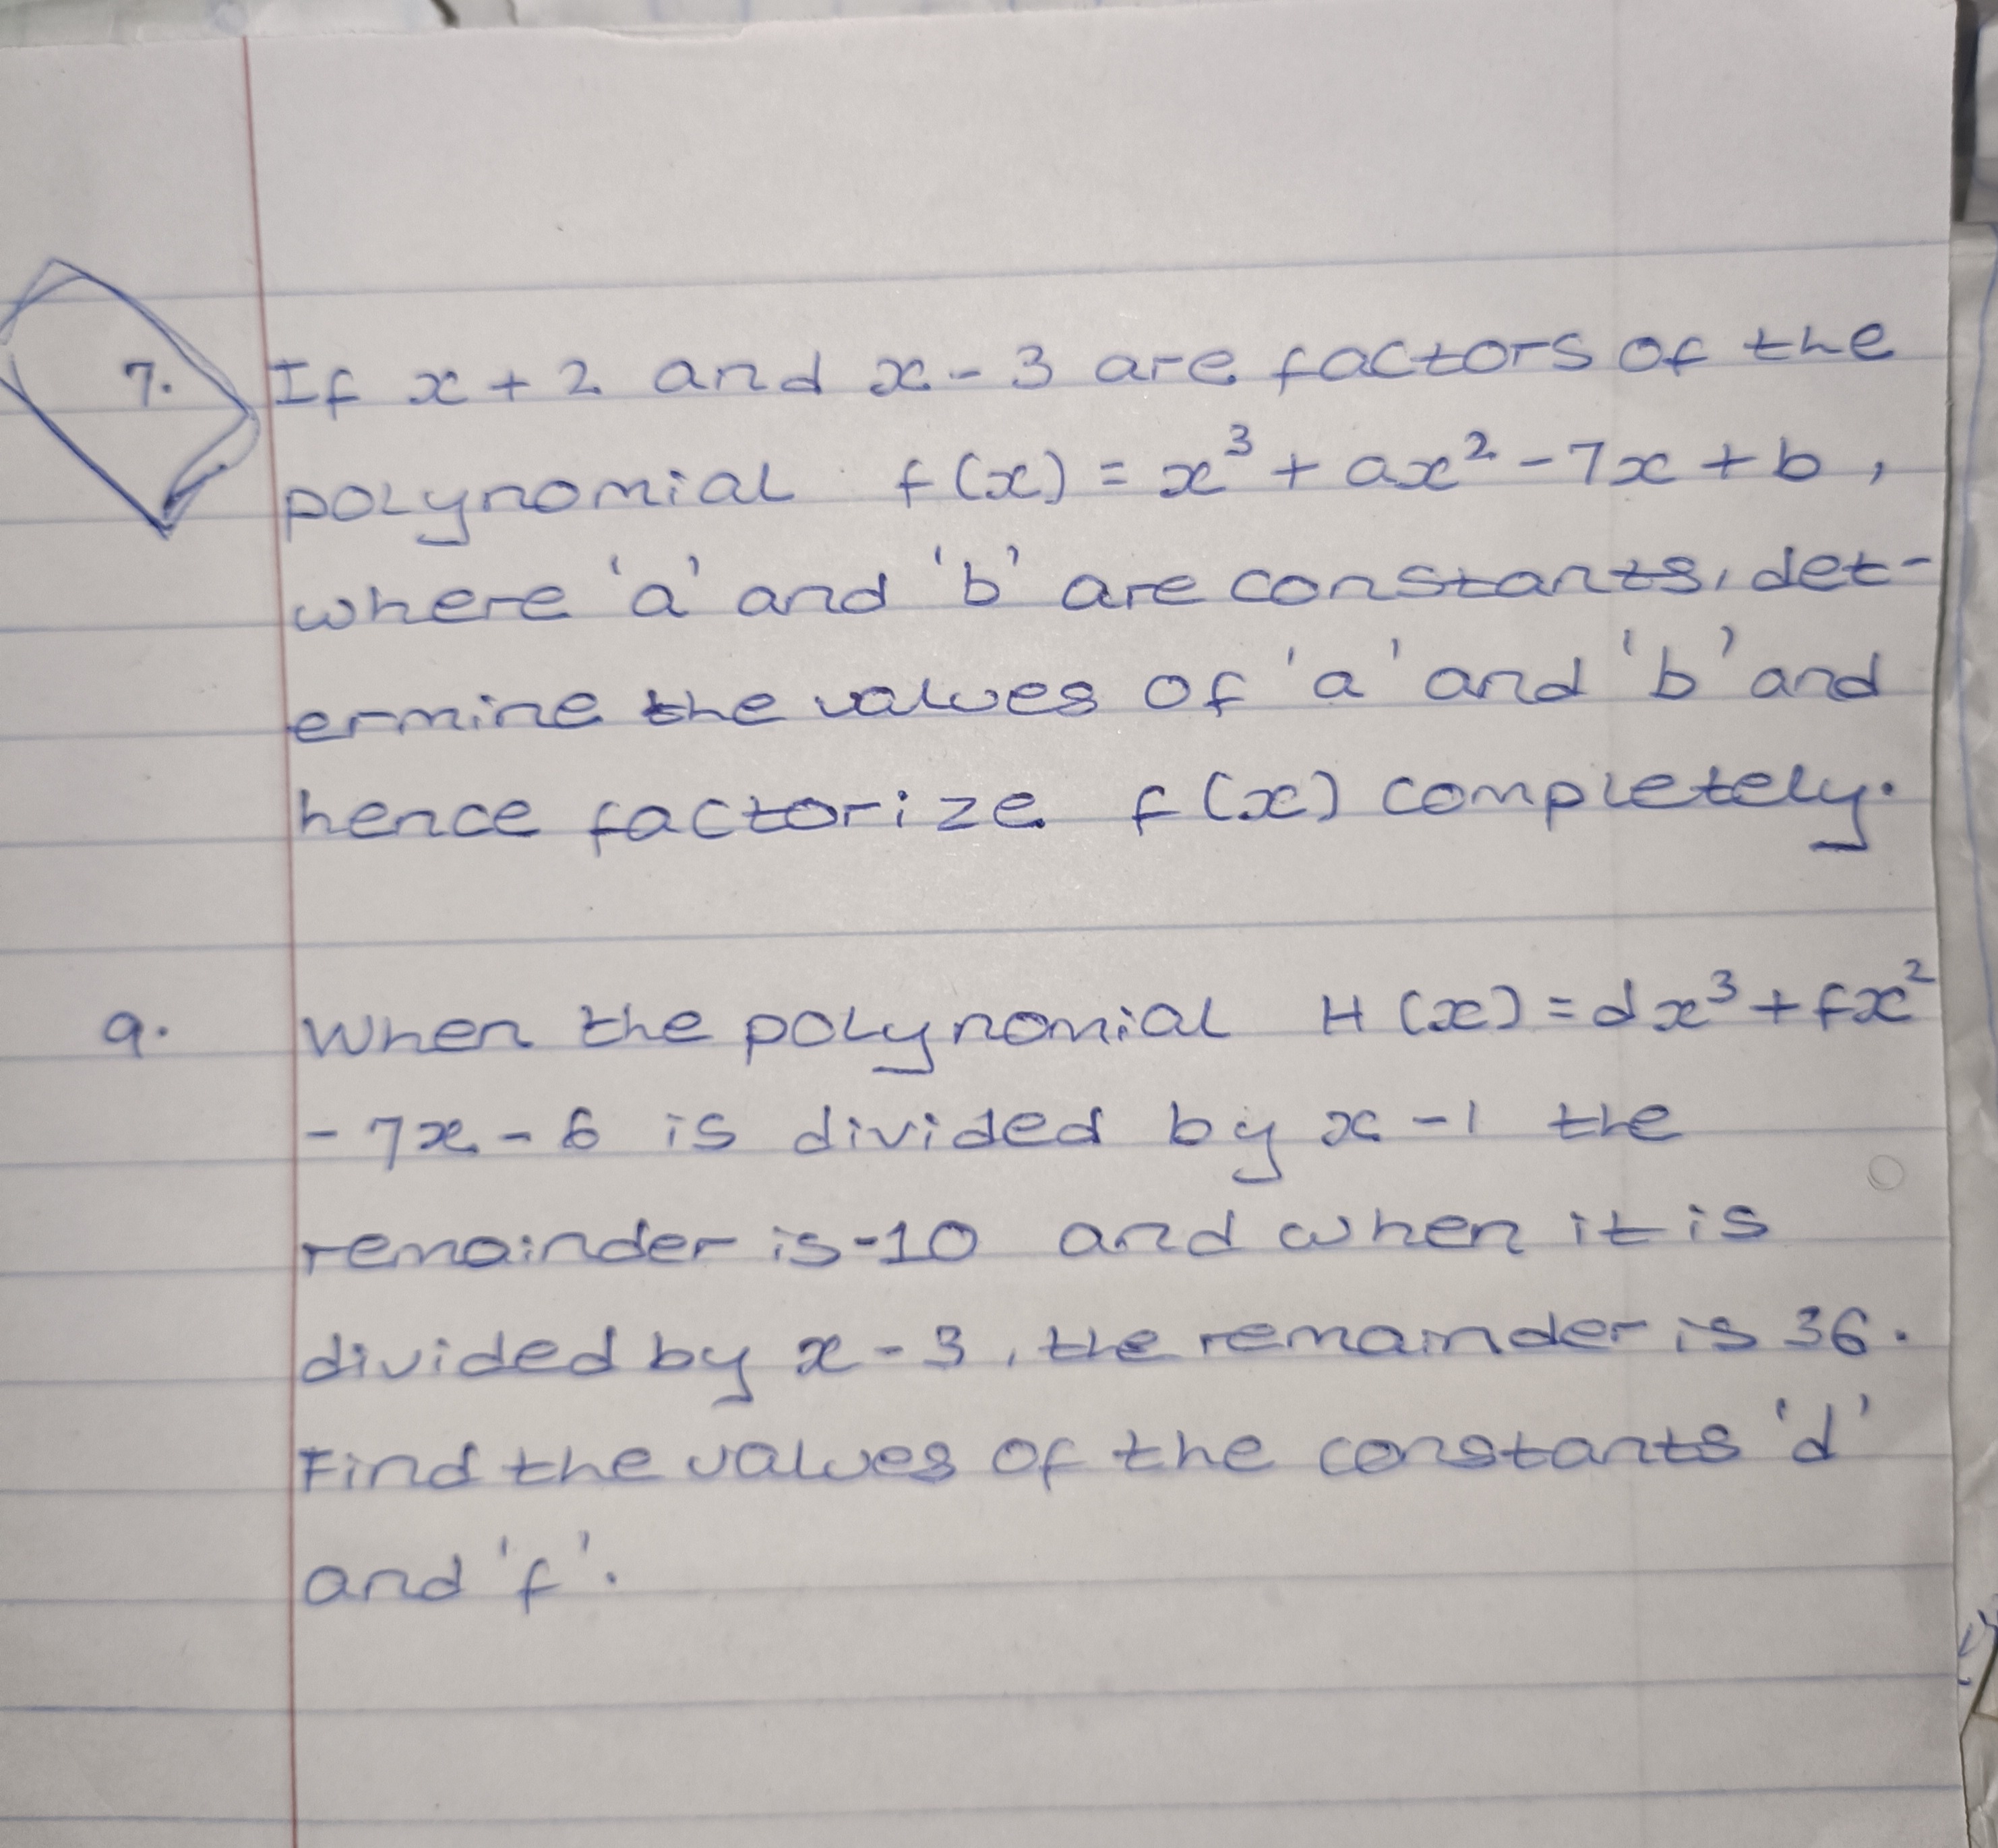 7. If x + 2 and x - 3 are factors of the
polynomial f(x) = x³ + ax² - 7x + b,
where 'a' and 'b' are constants, det-
ermine the values of 'a' and 'b' and
hence factorize f(x) completely.
9. When the polynomial H(x) = dx³ + fx²
- 7x - 6 is divided by x - 1 the
remainder is -10 and when it is
divided by x - 3, the remainder is 36.
Find the values of the constants 'd'
and 'f'.